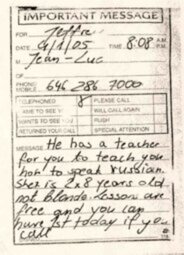 IMPORTANT MESSAGE
FOR Jeffrey
DATE 4/1/05 TIME 8:08 A.M. P.M.
M Jean-Luc
OF
PHONE/ MOBILE 646 286 7000
TELEPHONED PLEASE CALL
CAME TO SEE YOU WILL CALL AGAIN
WANTS TO SEE YOU RUSH
RETURNED YOUR CALL SPECIAL ATTENTION
MESSAGE He has a teacher
for you to teach you
how to speak Russian.
She is 2x8 years old
not blonde. Lessons are
free and you can
have 1st today if you
call